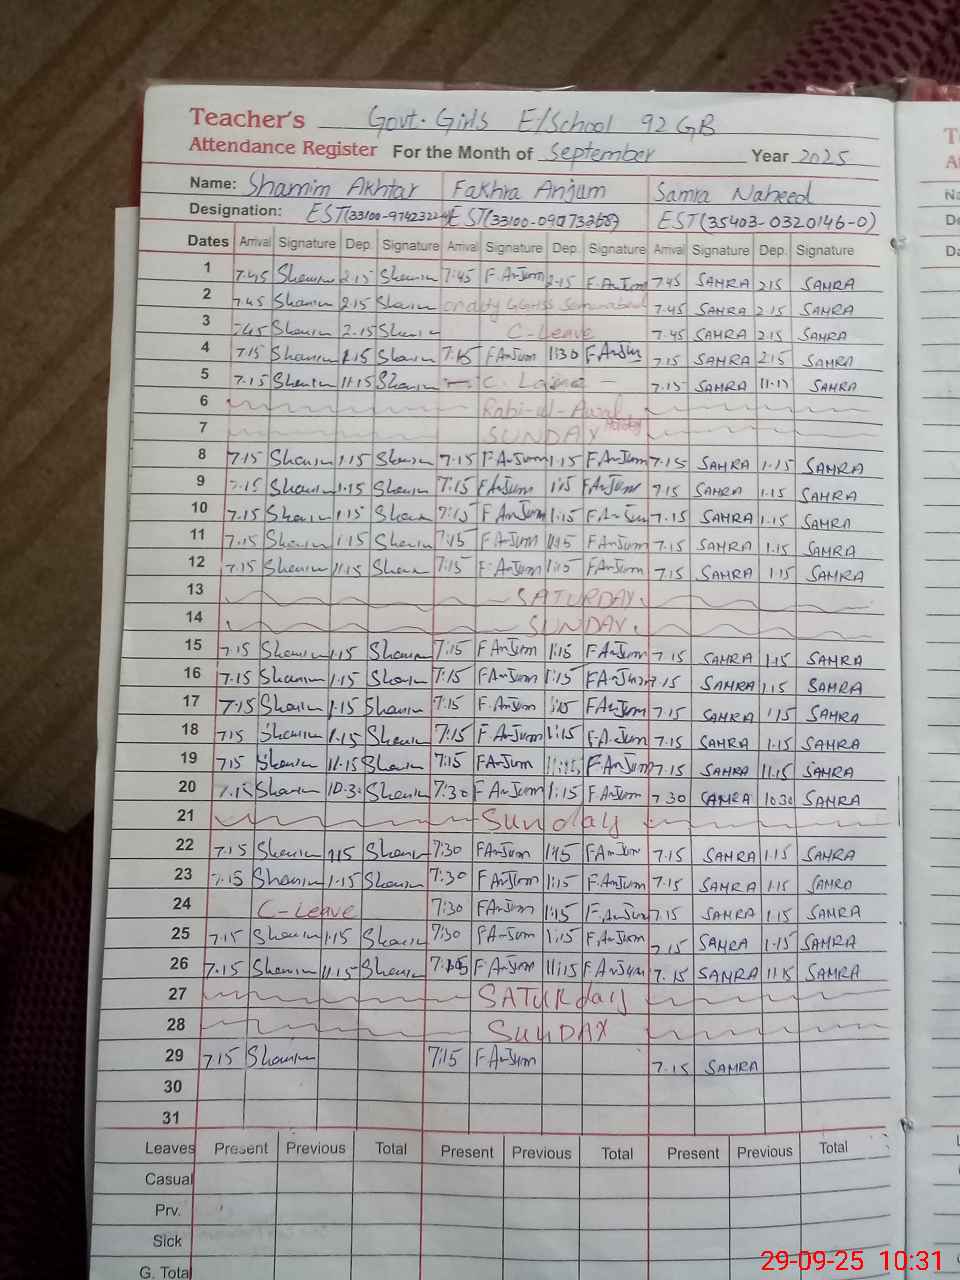 Teacher's Govt. Girls E/School 92 GB
Attendance Register For the Month of September Year 2025
Name: Shamim Akhtar Fakhra Anjum Samra Naheed
Designation: EST(33100- EST(33100- EST(35403-0320146-0)
Dates Arrival Signature Dep. Signature Arrival Signature Dep. Signature Arrival Signature Dep. Signature
1 7.45 Shamim 2.15 Shamim 7:45 F.AnJum 2.15 F.AnJum 7.45 SAMRA 2.15 SAMRA
2 7.45 Shamim 2.15 Shamim on duty 7.45 SAMRA 2.15 SAMRA
3 7.45 Shamim 2.15 Shamim C-Leave 7.45 SAMRA 2.15 SAMRA
4 7.15 Shamim 1.15 Shamim 7:15 F AnJum 1:30 F AnJum 7.15 SAMRA 2.15 SAMRA
5 7.15 Shamim 11.15 Shamim - C. - 7.15 SAMRA 11.1 SAMRA
6 Rabi-ul-Awal Holiday
7 SUNDAY
8 7.15 Shamim 1.15 Shamim 7.15 F AnJum 1.15 F AnJum 7.15 SAMRA 1.15 SAMRA
9 7.15 Shamim 1.15 Shamim 7:15 F AnJum 1:15 F AnJum 7.15 SAMRA 1.15 SAMRA
10 7.15 Shamim 1.15 Shamim 7:15 F AnJum 1:15 F AnJum 7.15 SAMRA 1.15 SAMRA
11 7.15 Shamim 1.15 Shamim 7:15 F AnJum 1:15 F AnJum 7.15 SAMRA 1.15 SAMRA
12 7.15 Shamim 11.15 Shamim 7:15 F AnJum 1:15 F AnJum 7.15 SAMRA 1.15 SAMRA
13 SATURDAY.
14 SUNDAY.
15 7.15 Shamim 1.15 Shamim 7:15 F AnJum 1:15 F AnJum 7.15 SAMRA 1.15 SAMRA
16 7.15 Shamim 1.15 Shamim 7:15 F AnJum 1:15 F AnJum 7.15 SAMRA 1.15 SAMRA
17 7.15 Shamim 1.15 Shamim 7:15 F.AnJum 1:15 F AnJum 7.15 SAMRA 1.15 SAMRA
18 7.15 Shamim 1.15 Shamim 7:15 F.AnJum 1:15 F.AnJum 7.15 SAMRA 1.15 SAMRA
19 7.15 Shamim 11.15 Shamim 7:15 F AnJum 11:15 F AnJum 7.15 SAMRA 11.15 SAMRA
20 7.15 Shamim 10.30 Shamim 7:30 F AnJum 1:15 F AnJum 7.30 SAMRA 10.30 SAMRA
21 Sunday
22 7.15 Shamim 1.15 Shamim 7:30 F AnJum 1:15 F AnJum 7.15 SAMRA 1.15 SAMRA
23 7.15 Shamim 1.15 Shamim 7:30 F AnJum 1:15 F.AnJum 7.15 SAMRA 1.15 SAMRA
24 C-Leave 7:30 F AnJum 1:15 F.AnJum 7.15 SAMRA 1.15 SAMRA
25 7.15 Shamim 1:15 Shamim 7:30 F AnJum 1:15 F.AnJum 7.15 SAMRA 1.15 SAMRA
26 7.15 Shamim 11.15 Shamim F AnJum 11:15 F AnJum 7.15 SAMRA 11.15 SAMRA
27 SATURday
28 SuNDAY
29 7.15 Shamim 7:15 F AnJum 7.15 SAMRA
30
31
Leaves Present Previous Total Present Previous Total Present Previous Total
Casual
Prv.
Sick
G. Total
29-09-25 10:31